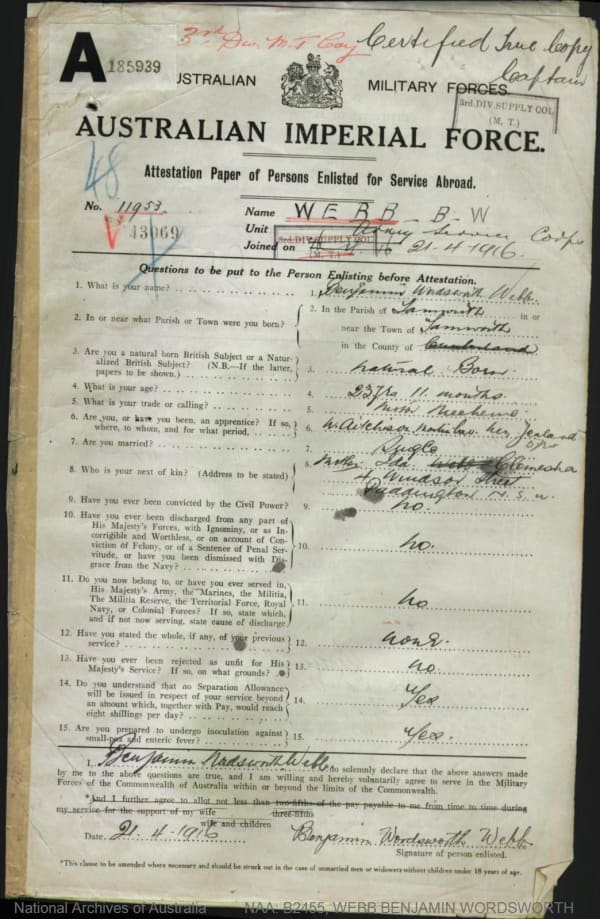 3rd Div. M.T. Coy Certified True Copy
Captain
A 185939
AUSTRALIAN MILITARY FORCES.
3rd. DIV. SUPPLY COL.
(M. T.)
AUSTRALIAN IMPERIAL FORCE.
Attestation Paper of Persons Enlisted for Service Abroad.
48
No. 11953
V 43069
Name WEBB B-W
Unit Army Service Corps
3rd. DIV. SUPPLY COL.
(M. T.)
Joined on 21.4.1916.
Questions to be put to the Person Enlisting before Attestation.
1. What is your name? 1. Benjamin Wordsworth Webb.
2. In or near what Parish or Town were you born? 2. In the Parish of Tamworth in or
near the Town of Tamworth
in the County of Cumberland
3. Are you a natural born British Subject or a Natur-
alized British Subject? (N.B.—If the latter,
papers to be shown.) 3. Natural Born
4. What is your age? 4. 23 yrs 11 months.
5. What is your trade or calling? 5. Motor Mechanic
6. Are you, or have you been, an apprentice? If so,
where, to whom, and for what period. 6. New Zealand
7. Are you married? 7. Single
8. Who is your next of kin? (Address to be stated) 8. Mother Ida Webb Clemesha
4 Windsor Street
Paddington N.S.W.
9. Have you ever been convicted by the Civil Power? 9. no.
10. Have you ever been discharged from any part of
His Majesty's Forces, with Ignominy, or as In-
corrigible and Worthless, or on account of Con-
viction of Felony, or of a Sentence of Penal Ser-
vitude, or have you been dismissed with Dis-
grace from the Navy? 10. no.
11. Do you now belong to, or have you ever served in,
His Majesty's Army, the Marines, the Militia,
The Militia Reserve, the Territorial Force, Royal
Navy, or Colonial Forces? If so, state which,
and if not now serving, state cause of discharge 11. no
12. Have you stated the whole, if any, of your previous
service? 12. none.
13. Have you ever been rejected as unfit for His
Majesty's Service? If so, on what grounds? 13. no.
14. Do you understand that no Separation Allowance
will be issued in respect of your service beyond
an amount which, together with Pay, would reach
eight shillings per day? 14. Yes
15. Are you prepared to undergo inoculation against
small-pox and enteric fever? 15. Yes.
I, Benjamin Wordsworth Webb do solemnly declare that the above answers made
by me to the above questions are true, and I am willing and hereby voluntarily agree to serve in the Military
Forces of the Commonwealth of Australia within or beyond the limits of the Commonwealth.
*And I further agree to allot not less than two-fifths of the pay payable to me from time to time during
three-fifths
my service for the support of my wife
wife and children
Date 21.4-1916 Benjamin Wordsworth Webb
Signature of person enlisted.
*This clause to be amended where necessary and should be struck out in the case of unmarried men or widowers without children under 18 years of age.
National Archives of Australia NAA: B2455, WEBB BENJAMIN WORDSWORTH